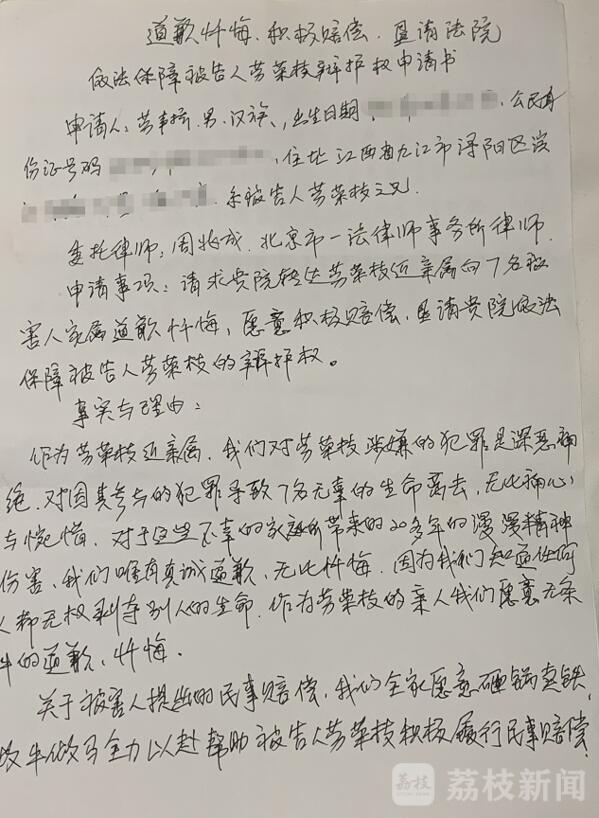 道歉忏悔、积极赔偿、恳请法院
依法保障被告人劳荣枝辩护权申请书
申请人:劳声桥,男,汉族,出生日期 公民身
份证号码 ,住址江西省九江市浔阳区滨
系被告人劳荣枝之兄.
委托律师:周兆成,北京市一法律师事务所律师.
申请事项:请求贵院转达劳荣枝近亲属向7名被
害人家属道歉忏悔,愿意积极赔偿,恳请贵院依法
保障被告人劳荣枝的辩护权。
事实与理由:
作为劳荣枝近亲属,我们对劳荣枝涉嫌的犯罪是深恶痛
绝.对因其参与的犯罪导致7名无辜的生命离去,无比痛心
与惋惜.对于这些不幸的家庭所带来的20多年的漫漫精神
伤害、我们唯有真诚道歉、无比忏悔.因为我们知道任何
人都无权剥夺别人的生命.作为劳荣枝的亲人我们愿意无条
件的道歉、忏悔.
关于被害人提出的民事赔偿,我们全家愿意砸锅卖铁,
做牛做马全力以赴帮助被告人劳荣枝积极履行民事赔偿
荔枝 荔枝新闻